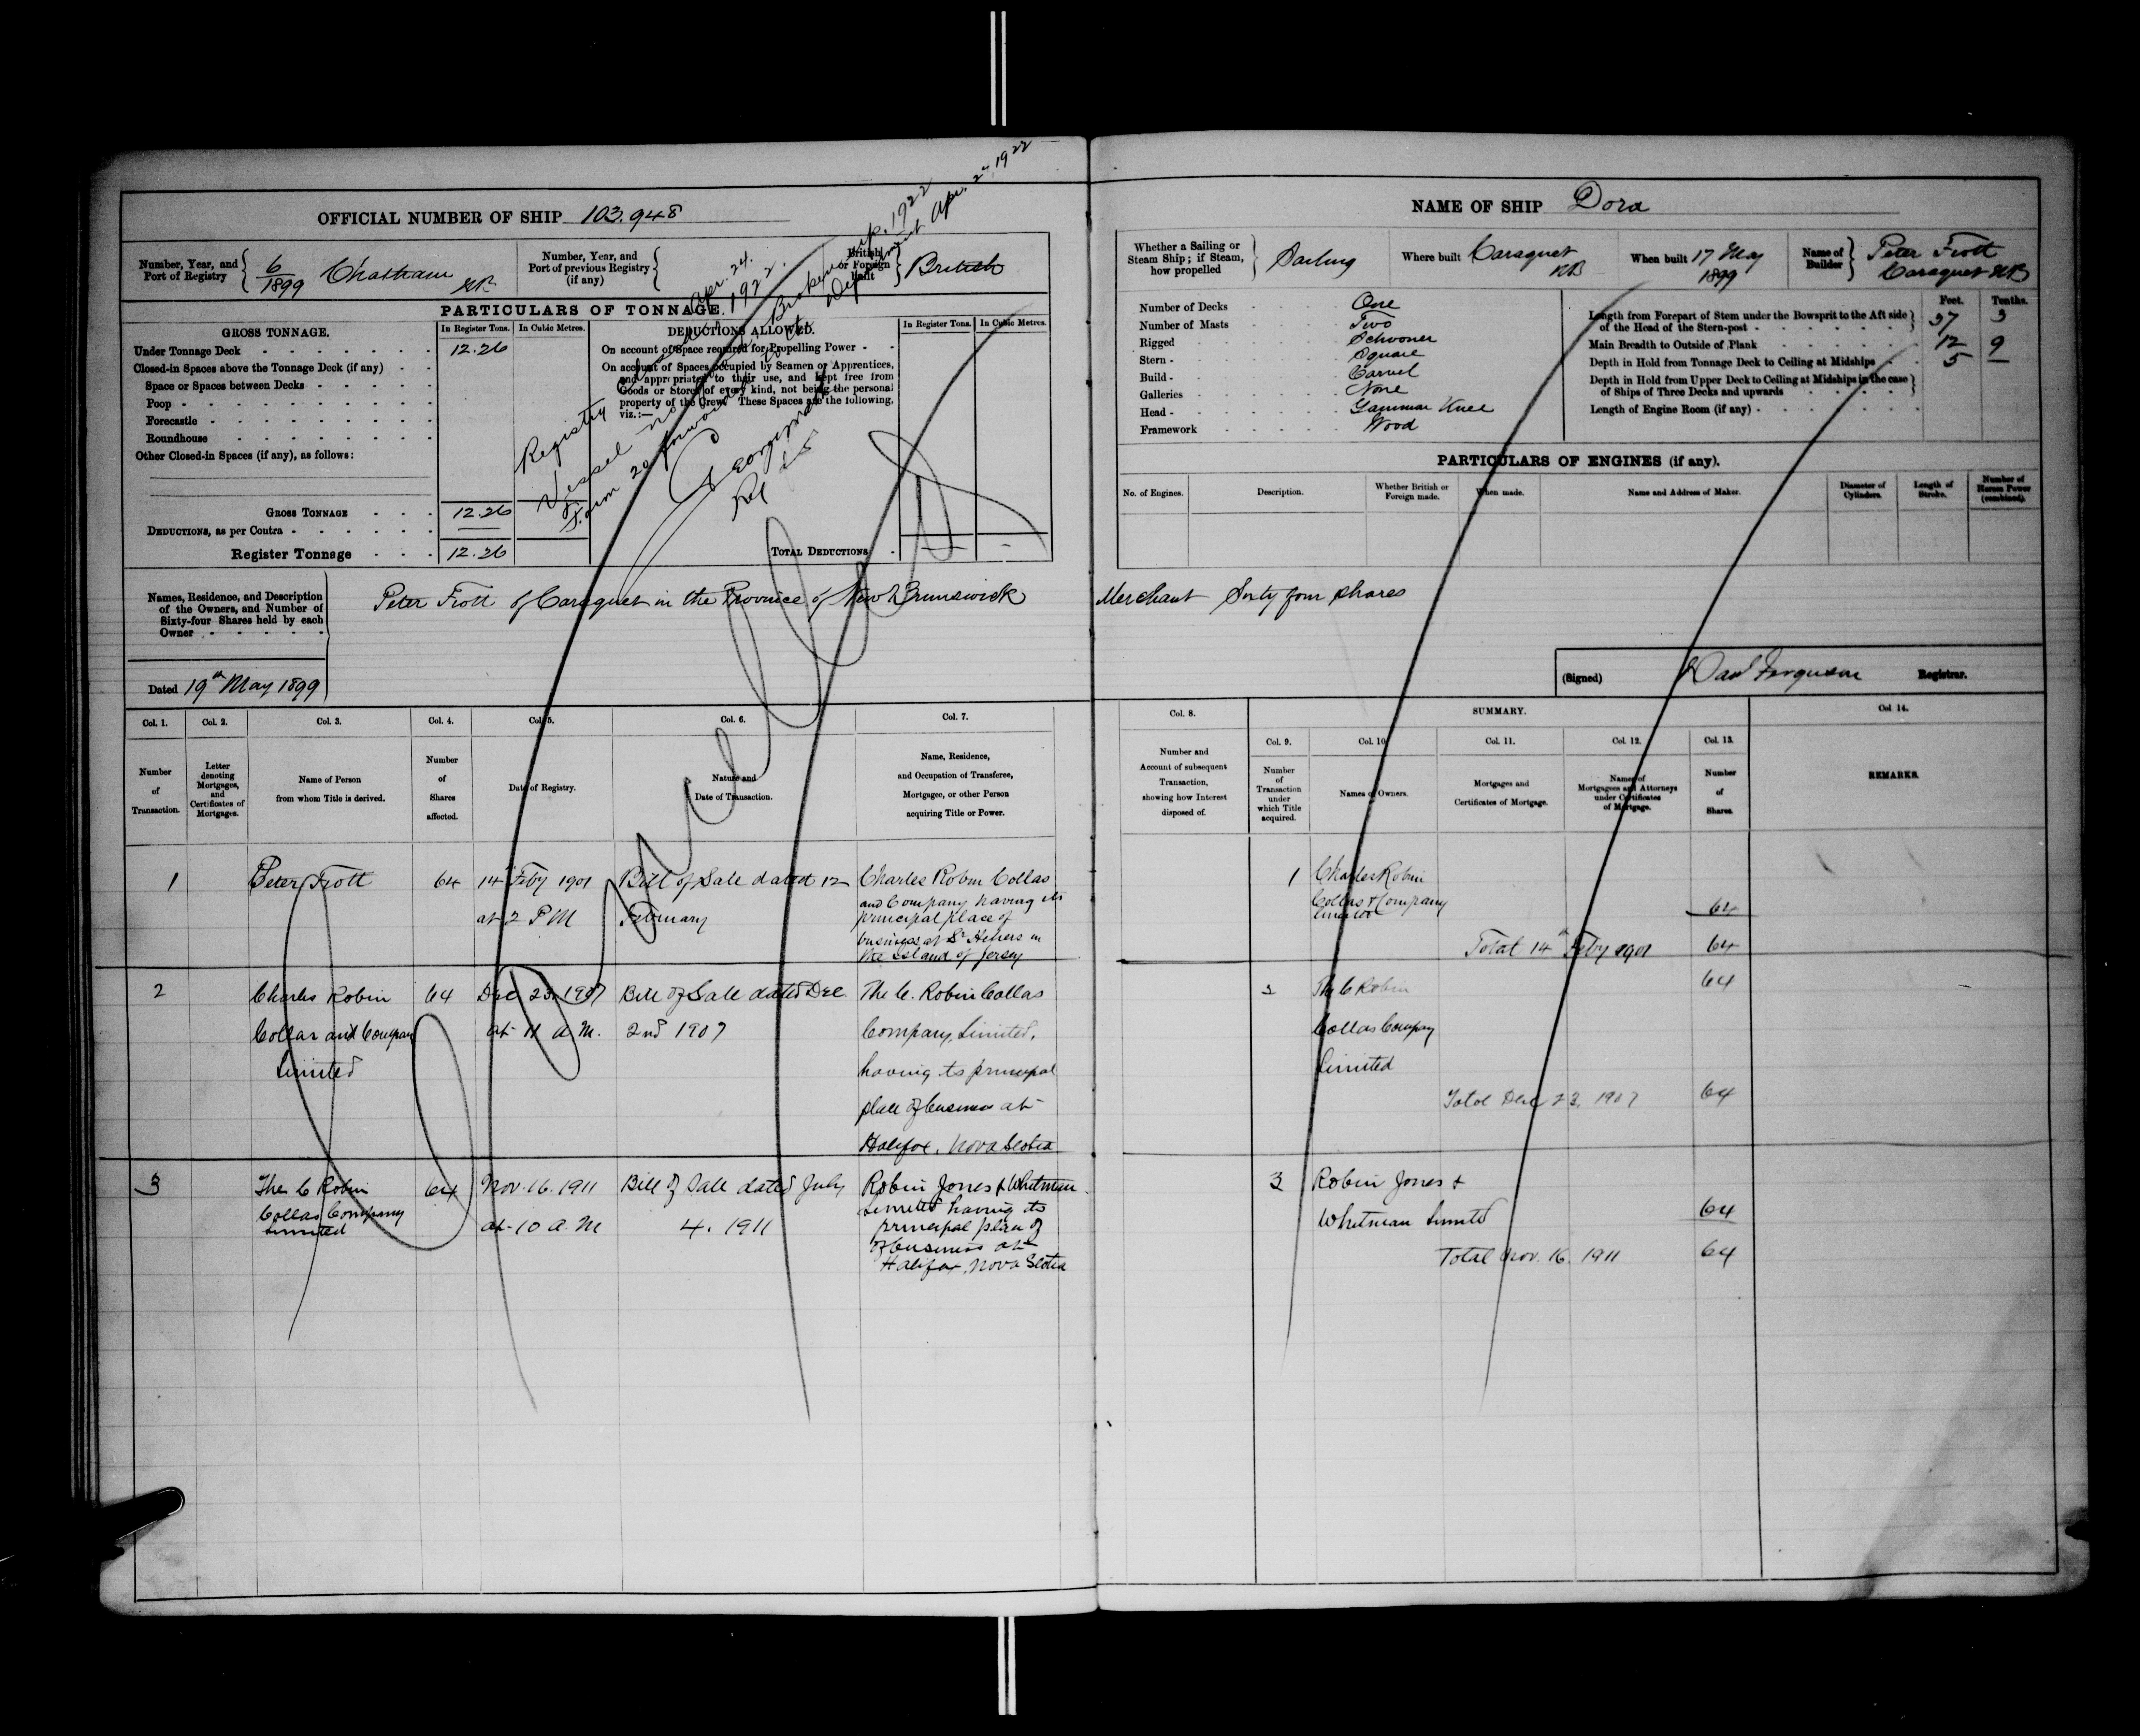 OFFICIAL NUMBER OF SHIP 103.948
Number, Year, and Port of Registry 6/1899 Chatham NB
Number, Year, and Port of previous Registry (if any)
British or Foreign built British
PARTICULARS OF TONNAGE.
GROSS TONNAGE. In Register Tons. In Cubic Metres.
DEDUCTIONS ALLOWED. In Register Tons. In Cubic Metres.
Under Tonnage Deck 12.26
Closed-in Spaces above the Tonnage Deck (if any)
Space or Spaces between Decks
Poop
Forecastle
Roundhouse
Other Closed-in Spaces (if any), as follows:
GROSS TONNAGE 12.26
DEDUCTIONS, as per Contra
Register Tonnage 12.26
On account of Space required for Propelling Power
On account of Spaces occupied by Seamen or Apprentices,
and appropriated to their use, and kept free from
Goods or Stores of every kind, not being the personal
property of the Crew. These Spaces are the following,
viz.:—
TOTAL DEDUCTIONS
Registry closed Apr. 24. 1922.
Vessel Broken up. 1922
Form 20 forwarded to Department Apr. 24 1922
Names, Residence, and Description
of the Owners, and Number of
Sixty-four Shares held by each
Owner
Peter Frott of Caraquet in the Province of New Brunswick Merchant Sixty four shares
Dated 19th May 1899
NAME OF SHIP Dora
Whether a Sailing or Steam Ship; if Steam, how propelled Sailing
Where built Caraquet NB
When built 17 May 1899
Name of Builder Peter Frott Caraquet NB
Number of Decks One
Number of Masts Two
Rigged Schooner
Stern Square
Build Carvel
Galleries None
Head Gammon Knee
Framework Wood
Feet. Tenths.
Length from Forepart of Stem under the Bowsprit to the Aft side
of the Head of the Stern-post 37 3
Main Breadth to Outside of Plank 12 9
Depth in Hold from Tonnage Deck to Ceiling at Midships 5 —
Depth in Hold from Upper Deck to Ceiling at Midships in the case
of Ships of Three Decks and upwards
Length of Engine Room (if any)
PARTICULARS OF ENGINES (if any).
No. of Engines. Description. Whether British or Foreign made. When made. Name and Address of Maker. Diameter of Cylinders. Length of Stroke. Number of Horses Power (combined).
(Signed) Dan Ferguson Registrar.
Col. 1. Col. 2. Col. 3. Col. 4. Col. 5. Col. 6. Col. 7.
Number of Transaction.
Letter denoting Mortgages, and Certificates of Mortgages.
Name of Person from whom Title is derived.
Number of Shares affected.
Date of Registry.
Nature and Date of Transaction.
Name, Residence, and Occupation of Transferee, Mortgagee, or other Person acquiring Title or Power.
1 Peter Frott 64 14th Feby 1901 Bill of Sale dated 12 Charles Robin Collas
at 2 PM February and Company having its
principal place of
business at St Heliers in
the Island of Jersey
2 Charles Robin 64 Dec 23. 1907 Bill of Sale dated Dec The C. Robin Collas
Collas and Company at 11 a.m. 2nd 1907 Company, Limited,
Limited having its principal
place of business at
Halifax, Nova Scotia
3 The C Robin 64 Nov. 16. 1911 Bill of Sale dated July Robin Jones & Whitman
Collas Company at 10 a.m 4. 1911 Limited having its
Limited principal place of
of business at
Halifax, Nova Scotia
Col. 8. SUMMARY. Col 14.
Col. 9. Col. 10. Col. 11. Col. 12. Col. 13.
Number and Account of subsequent Transaction, showing how Interest disposed of.
Number of Transaction under which Title acquired.
Names of Owners.
Mortgages and Certificates of Mortgage.
Names of Mortgagees and Attorneys under Certificates of Mortgage.
Number of Shares.
REMARKS.
1 Charles Robin
Collas & Company
Limited 64
Total 14th Feby 1901 64
2 The C Robin 64
Collas Company
Limited
Total Dec 23. 1907 64
3 Robin Jones &
Whitman Limited 64
Total Nov. 16. 1911 64